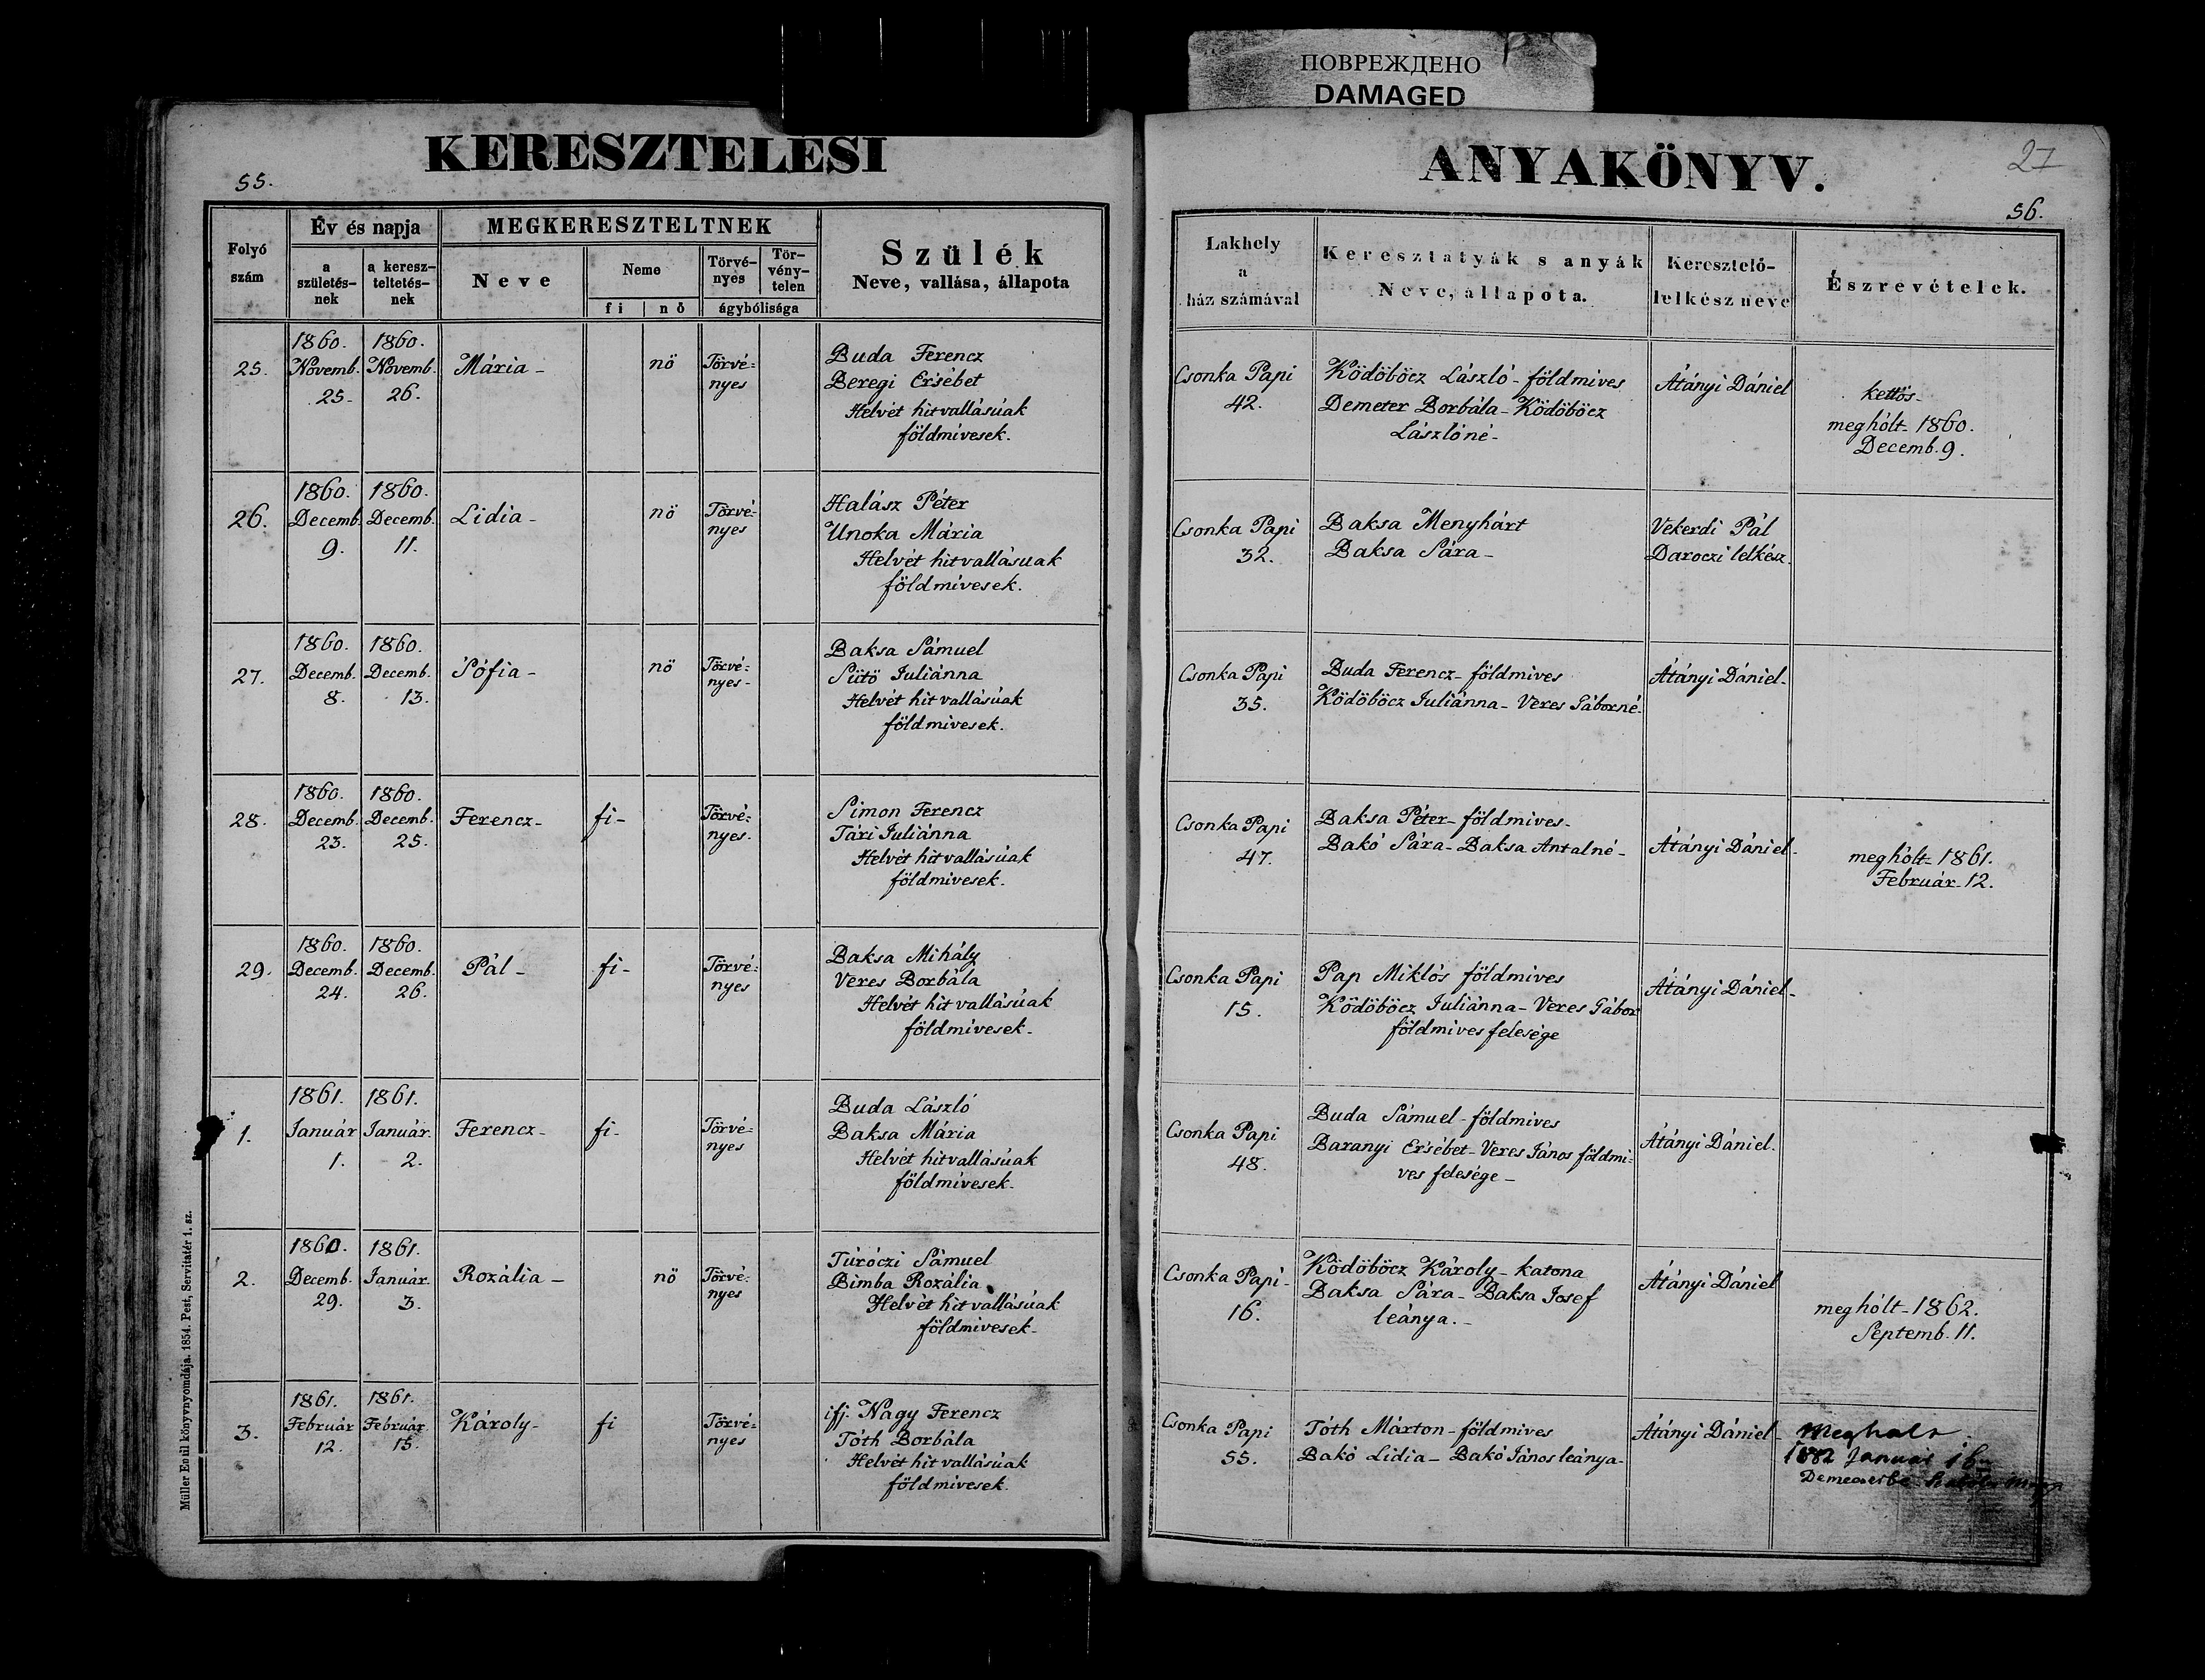 ПОВРЕЖДЕНО
DAMAGED
KERESZTELÉSI
ANYAKÖNYV.
27
55.
56.
Folyó szám
Év és napja
a születés-nek
a keresz-teltetés-nek
MEGKERESZTELTNEK
Neve
Neme
fi
nő
Törvé-nyes
Tör-vény-telen
ágybólisága
Szülék
Neve, vallása, állapota
Lakhely
a
ház számával
Keresztatyák s anyák
Neve, állapota.
Keresztelő-
lelkész neve
Észrevételek.
25.
1860. Novemb. 25-
1860. Novemb. 26.
Mária-
nö
Törvé=
nyes
Buda Ferencz
Beregi Ersébet
Helvét hitvallásúak
földmivesek.
Csonka Papi
42.
Ködöböcz László- földmives
Demeter Borbála- Ködöböcz
Lászlóné-
Átányi Dániel
kettös-
meghólt- 1860.
Decemb. 9.
26.
1860. Decemb. 9.
1860. Decemb. 11.
Lidia-
nö
Törvé=
nyes
Halász Péter
Unoka Mária
Helvét hitvallásúak
földmivesek.
Csonka Papi
32.
Baksa Menyhárt
Baksa Sára-
Vekerdi Pál
Daroczi lelkész.
27.
1860. Decemb. 8.
1860. Decemb. 13.
Sófia-
nö
Törvé=
nyes-
Baksa Sámuel
Sütö Juliánna
Helvét hitvallásúak
földmivesek.
Csonka Papi
35.
Buda Ferencz- földmives
Ködöböcz Juliánna- Veres Gáborné-
Átányi Dániel-
28.
1860. Decemb. 23.
1860. Decemb. 25.
Ferencz-
fi-
Törvé=
nyes.
Simon Ferencz
Tári Juliánna
Helvét hitvallásúak
földmivesek.
Csonka Papi
47.
Baksa Péter- földmives-
Bakó Sára- Baksa Antalné-
Átányi Dániel-
meghólt- 1861.
Február- 12.
29.
1860. Decemb. 24.
1860. Decemb. 26.
Pál-
fi-
Törvé=
nyes
Baksa Mihály
Veres Borbála
Helvét hitvallásúak
földmivesek-
Csonka Papi
15.
Pap Miklós földmives
Ködöböcz Juliánna- Veres Gábor
földmives felesége
Átányi Dániel-
1.
1861. Január 1.
1861. Január. 2.
Ferencz-
fi-
Törvé=
nyes
Buda László
Baksa Mária
Helvét hitvallásúak
földmivesek-
Csonka Papi
48.
Buda Sámuel- földmives
Baranyi Ersébet- Veres János földmi=
ves felesége-
Átányi Dániel.
2.
1860. Decemb. 29.
1861. Január. 3.
Rozália-
nö
Törvé=
nyes
Túróczi Sámuel
Bimba Rozália
Helvét hitvallásúak
földmivesek-
Csonka Papi-
16.
Ködöböcz Károly- katona
Baksa Sára- Baksa Josef
leánya.-
Átányi Dániel
meghólt- 1862.
Septemb. 11.
3.
1861. Február 12.
1861. Február 15.
Károly-
fi
Törvé=
nyes
ifj. Nagy Ferencz
Tóth Borbála
Helvét hitvallásúak
földmivesek.
Csonka Papi
55.
Tóth Márton- földmives
Bakó Lidia- Bakó János leánya-
Átányi Dániel-
Meghalt
1882 Január 16
Müller Emil könyvnyomdája. 1854. Pest, Servitatér 1. sz.